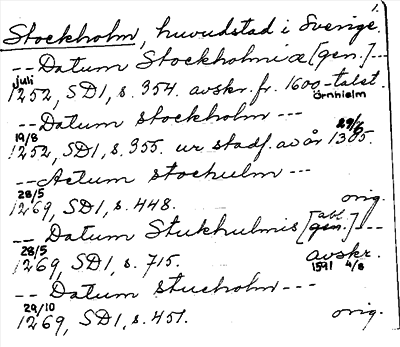 1.
Stockholm, huvudstad i Sverige.
-- Datum Stockholmiæ [gen.] --
juli
1252, SD1, s. 354. avskr. fr. 1600-talet.
Örnhielm
-- Datum stockholm ---
19/8 29/6
1252, SD1, s. 355. ur stadf. av år 1305.
-- Actum stochulm ---
28/5
1269, SD1, s. 448. orig.
-- Datum Stukhulmis [gen.] abl. --
28/5 avskr.
1269, SD1, s. 715. 1591 4/8
-- Datum stucholm ---
29/10
1269, SD1, s. 451. orig.